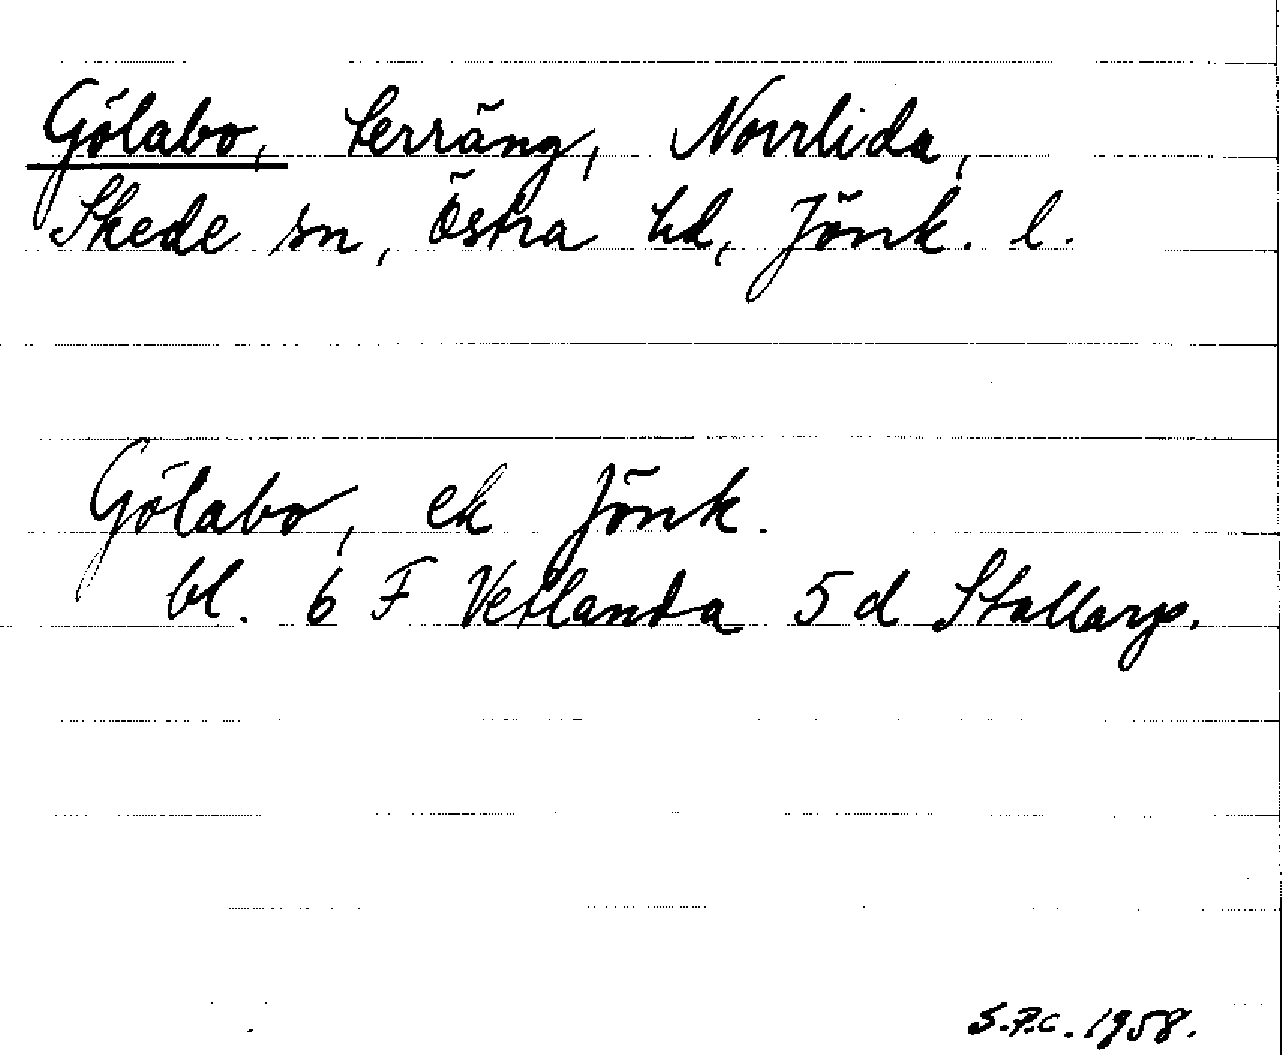 Gölabo, terräng, Norrlida,
Skede sn, Östra hd, Jönk. l.
Gölabo, ek Jönk.
bl. 6 F Vetlanda 5 d Stallarp.
S.P.C. 1958.